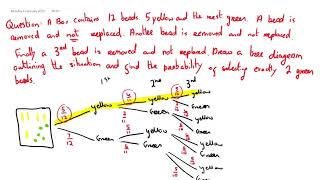 Question: A Box contains 12 beads. 5 yellow and the rest green. A bead is
removed and not replaced. Another bead is removed and not replaced.
Finally a 3rd bead is removed and not replaced. Draw a tree diagram
outlining the situation and find the probability of selecting exactly 2 green
beads.
1st 2nd 3rd
5/12 yellow 4/11 yellow 3/10 yellow
Green
Green yellow
Green
7/12 Green 5/11 yellow yellow
Green
6/11 Green yellow
Green